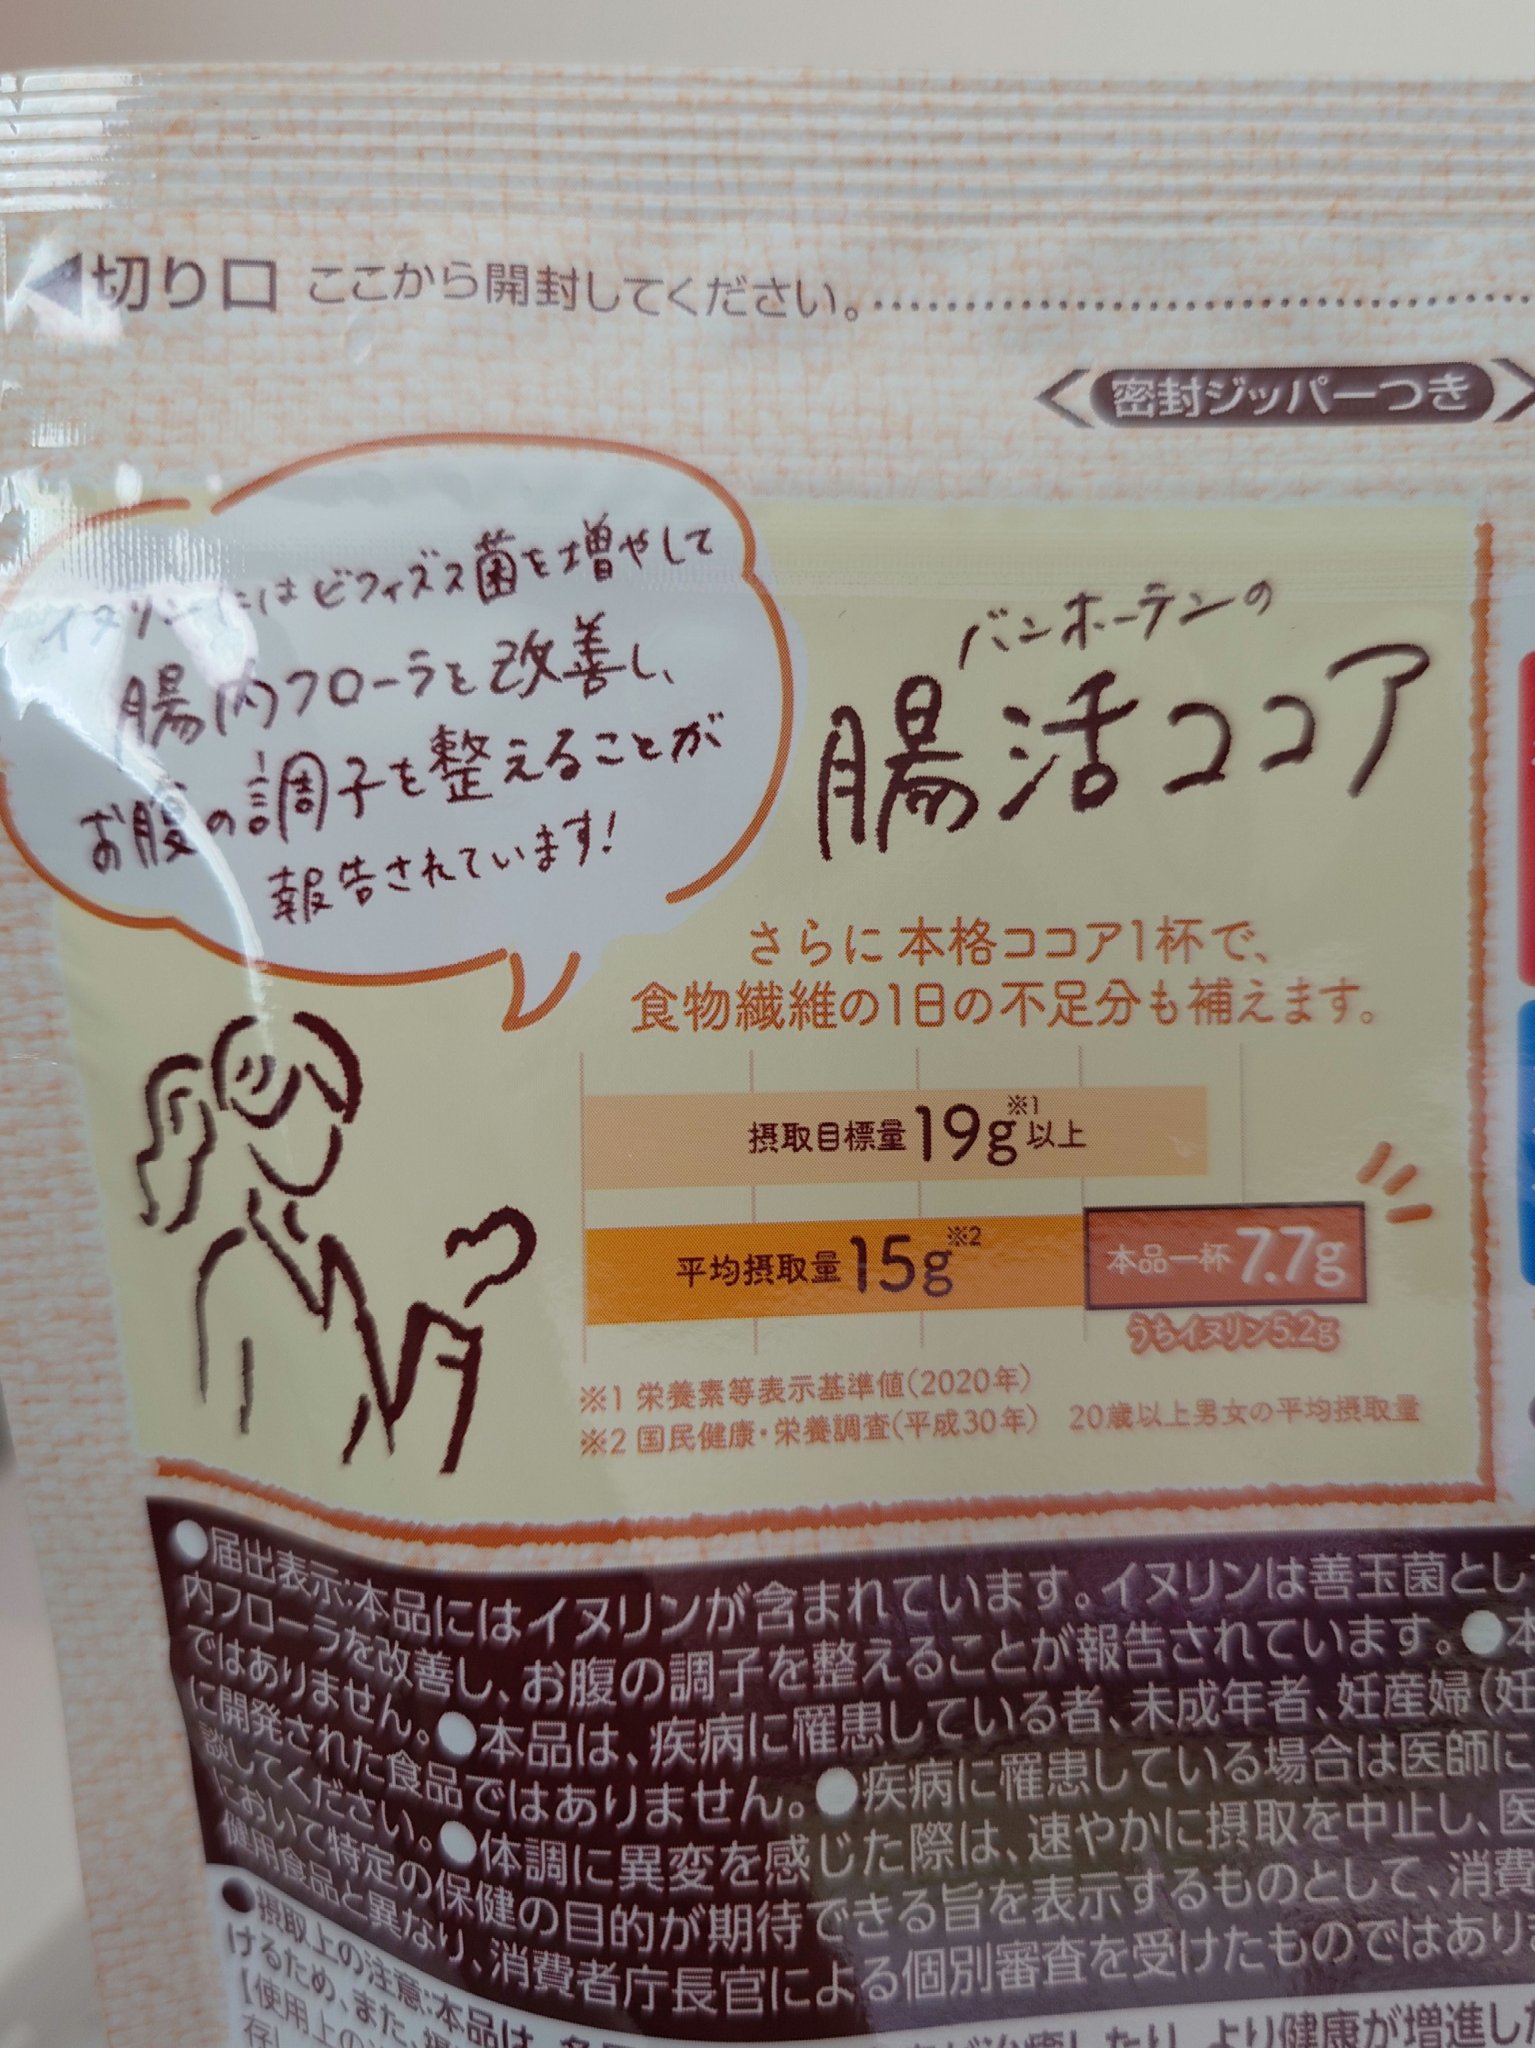 切り口 ここから開封してください。
密封ジッパーつき
イヌリンにはビフィズス菌を増やして
腸内フローラを改善し、
お腹の調子を整えることが
報告されています!
バンホーテンの
腸活ココア
さらに本格ココア1杯で、
食物繊維の1日の不足分も補えます。
摂取目標量19g※1以上
平均摂取量15g※2
本品一杯7.7g
うちイヌリン5.2g
※1 栄養素等表示基準値(2020年)
※2 国民健康・栄養調査(平成30年) 20歳以上男女の平均摂取量
●届出表示:本品にはイヌリンが含まれています。イヌリンは善玉菌とし
内フローラを改善し、お腹の調子を整えることが報告されています。●本
ではありません。●本品は、疾病に罹患している者、未成年者、妊産婦(妊
に開発された食品ではありません。●疾病に罹患している場合は医師に
談してください。●体調に異変を感じた際は、速やかに摂取を中止し、医
において特定の保健の目的が期待できる旨を表示するものとして、消費
健用食品と異なり、消費者庁長官による個別審査を受けたものではあり
●摂取上の注意:本品は、多
けるため、また、摂
が治癒したり、より健康が増進した
【使用上の
存